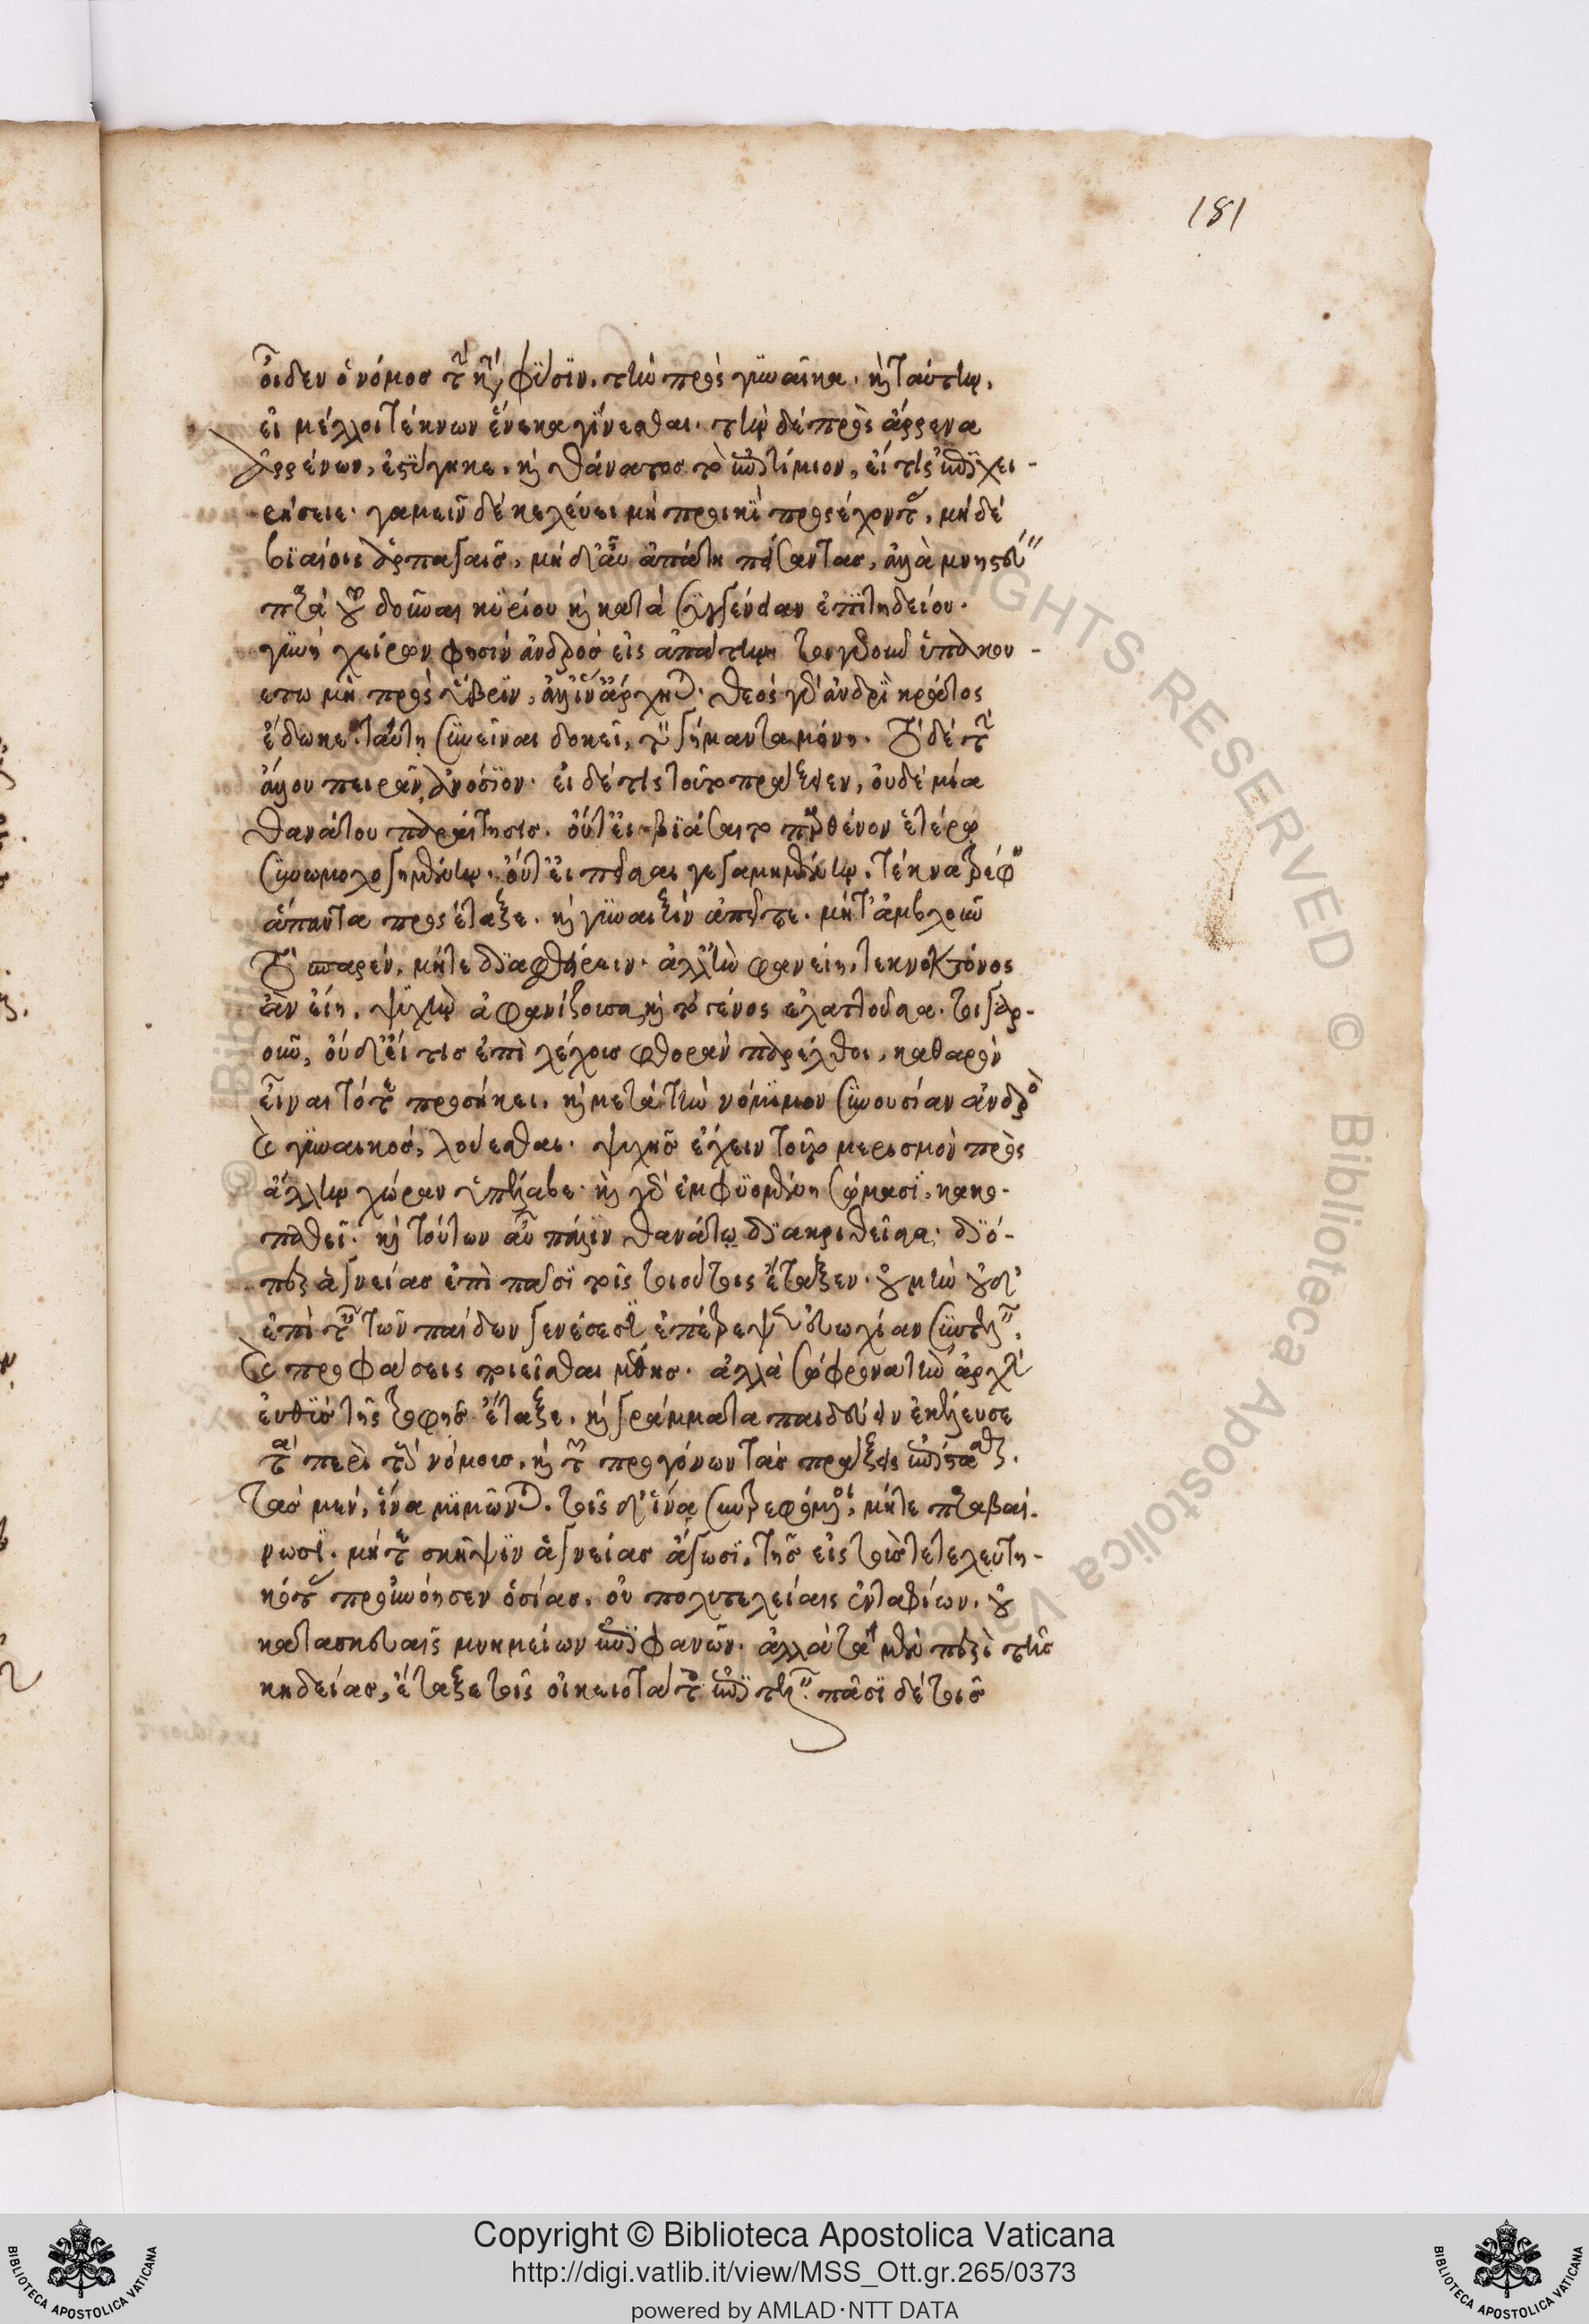 181
οἶδεν ὁ νόμος τὴν κατὰ φύσιν τὴν πρὸς γυναῖκα. καὶ ταύτην,
εἰ μέλλοι τέκνων ἕνεκα γίνεσθαι. τὴν δὲ πρὸς ἄρρενα
ἀρρένων, ἐστύγηκε. καὶ θάνατος τὸ ἐπιτίμιον, εἴ τις ἐπιχει-
ρήσειε. γαμεῖν δὲ κελεύει μὴ προικὶ προσέχοντας, μὴ δὲ
βιαίοις ἁρπαγαῖς, μὴ δ' αὖ ἀπάτη πείσαντας, ἀλλὰ μνηστεύειν
παρὰ τοῦ δοῦναι κυρίου καὶ κατὰ συγγένειαν ἐπιτηδείου.
γυνὴ χείρων φησὶν ἀνδρὸς εἰς ἅπαντα. τοιγαροῦν ὑπακου-
έτω μὴ πρὸς ὕβριν, ἀλλ' ἵν' ἄρχηται. θεὸς γὰρ ἀνδρὶ κράτος
ἔδωκε. ταύτη συνεῖναι δοκεῖ, τὸν γήμαντα μόνη. τὸ δὲ τὰς
ἄλλου πειρᾶν, ἀνόσιον. εἰ δέ τις τοῦτο πράξειεν, οὐδεμία
θανάτου παραίτησις. οὔτ' εἰ βιάσαιτο παρθένον ἑτέρῳ
συνωμολογημένην. οὔτ' εἰ πείσαι γεγαμημένην. τέκνα τρέφειν
ἅπαντα προσέταξε. καὶ γυναιξὶν ἀπεῖπε. μήτ' ἀμβλοῦν
τὸ σπαρέν, μήτε διαφθείρειν. ἀλλ' ἢν φανείη, τεκνοκτόνος
ἂν εἴη. ψυχὴν ἀφανίζουσα, καὶ τὸ γένος ἐλαττοῦσα. τοιγαρ-
οῦν, οὐδ' εἴ τις ἐπὶ λέχους φθορὰν παρέλθοι, καθαρὸν
εἶναι τότε προσήκει. καὶ μετὰ τὴν νόμιμον συνουσίαν ἀνδρὸς
καὶ γυναικός, λούεσθαι. ψυχῆς ἔχειν τοῦτο μερισμὸν πρὸς
ἄλλην χώραν ὑπέλαβε. καὶ γὰρ ἐμφυομένη σώμασι, κακο-
παθεῖ. καὶ τούτων αὖ πάλιν θανάτῳ διακριθεῖσα. διό-
περ ἁγνείας ἐπὶ πᾶσι τοῖς τοιούτοις ἔταξεν. οὐ μὴν οὐδ'
ἐπὶ ταῖς τῶν παίδων γενέσεσιν ἐπέτρεψεν εὐωχίαν συντελεῖν.
καὶ προφάσεις ποιεῖσθαι μέθης. ἀλλὰ σώφρονα τὴν ἀρχὴν
εὐθὺς τῆς τροφῆς ἔταξε. καὶ γράμματα παιδεύειν ἐκέλευσε
τὰ περὶ τοὺς νόμους. καὶ τῶν προγόνων τὰς πράξεις ἐπίστασθαι.
τὰς μέν, ἵνα μιμῶνται. τοῖς δ' ἵνα συντρεφόμενοι, μήτε παραβαί-
νωσι. μήτε σκῆψιν ἀγνοίας ἔχωσι. τῆς εἰς τοὺς τετελευτη-
κότας προὐνόησεν ὁσίας. οὐ πολυτελείαις ἐνταφίων. οὐ
κατασκευαῖς μνημείων ἐπιφανῶν. ἀλλὰ τὰ μὲν περὶ τῆς
κηδείας, ἔταξε τοῖς οἰκειοτάτοις ἐπιτελεῖν. πᾶσι δὲ τοῖς
Copyright © Biblioteca Apostolica Vaticana
http://digi.vatlib.it/view/MSS_Ott.gr.265/0373
powered by AMLAD·NTT DATA